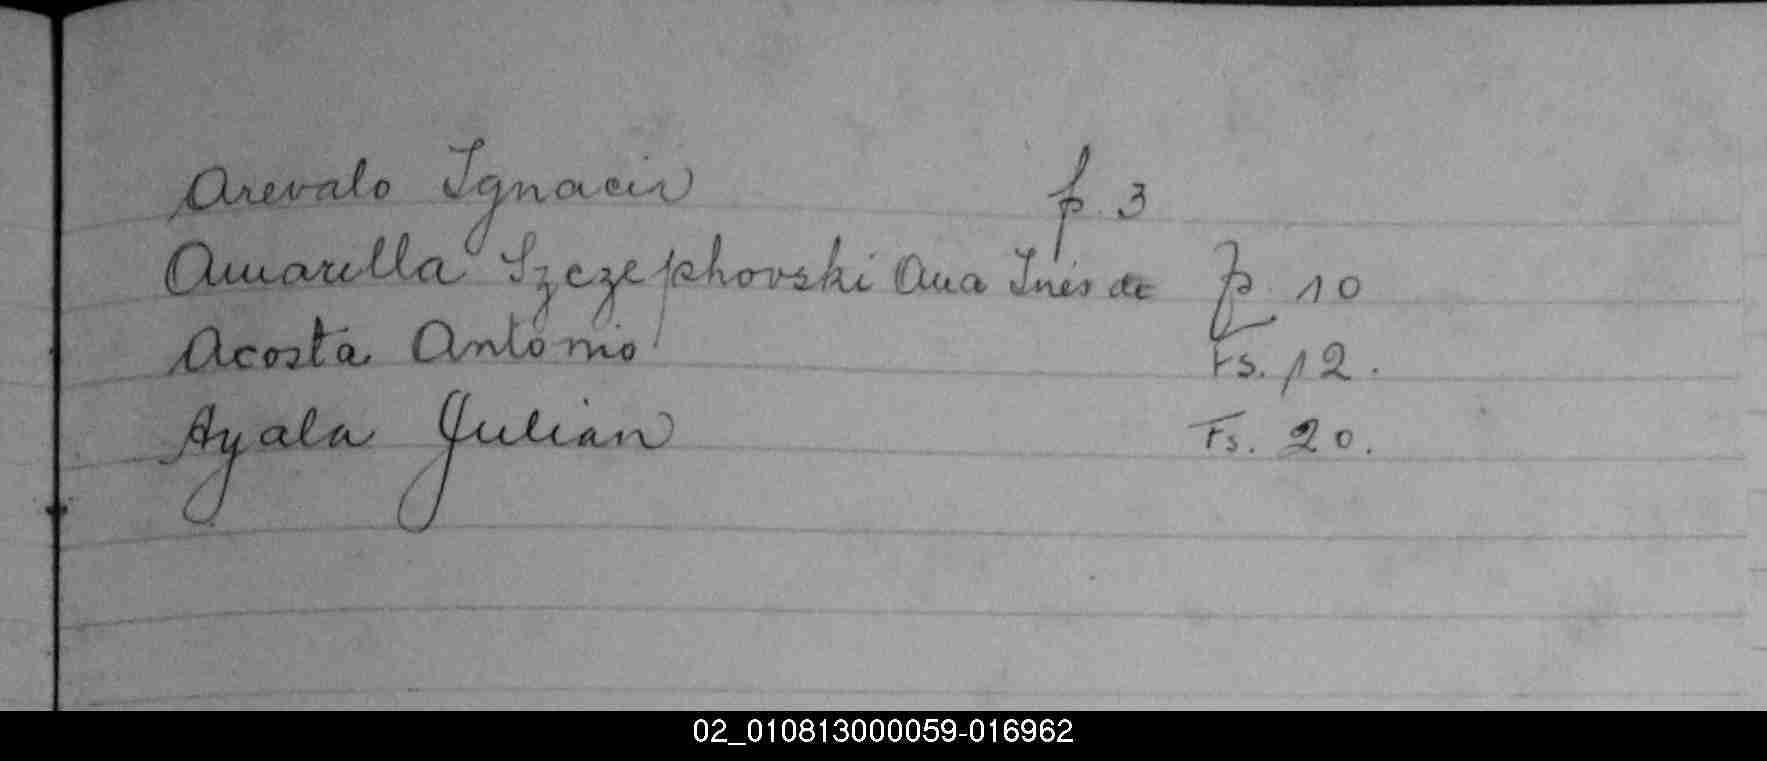 Arevalo Ignacio p. 3
Amarilla Szczephovski Ana Inés de p. 10
Acosta Antonio Fs. 12.
Ayala Julian Fs. 20.
02_010813000059-016962